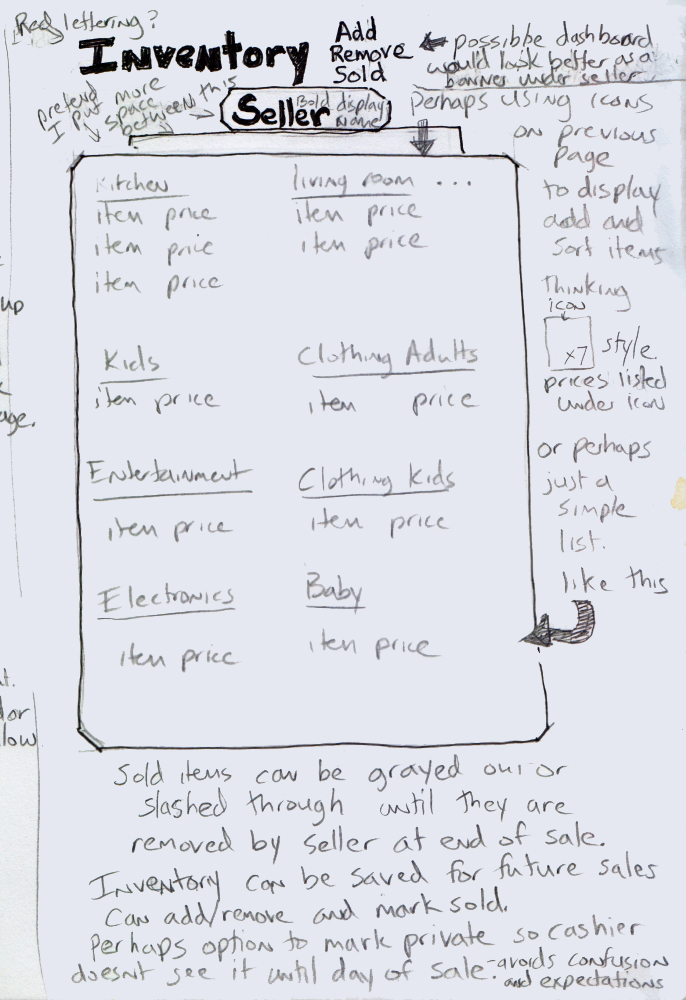 Red lettering?
Inventory
Add
Remove
Sold
possible dashboard
would look better as a
banner under seller
pretend
I put more
space
between this
Seller
Bold display
Name
perhaps using icons
on previous
page
to display
add and
sort items
Thinking
icon
x7 style
prices listed
under icon
or perhaps
just a
simple
list.
like this
Kitchen
item price
item price
item price
living room ...
item price
item price
Kids
item price
Clothing Adults
item price
Entertainment
item price
Clothing Kids
item price
Electronics
item price
Baby
item price
Sold items can be grayed out or
slashed through until they are
removed by seller at end of sale.
Inventory can be saved for future sales
Can add/remove and mark sold.
Perhaps option to mark private so cashier
doesnt see it until day of sale. -avoids confusion
and expectations
up
age.
low